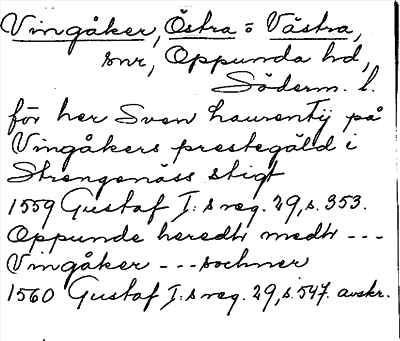 Vingåker, Östra o Västra,
snr, Oppunda hd,
Söderm. l.
för her Sven Laurentij på
Vingåkers prestegäld i
Strengenäss stigt
1559 Gustaf I:s reg. 29, s. 353.
Oppunde heredtr medtr ---
Vingåker --- sochner
1560 Gustaf I:s reg. 29, s. 547. avskr.